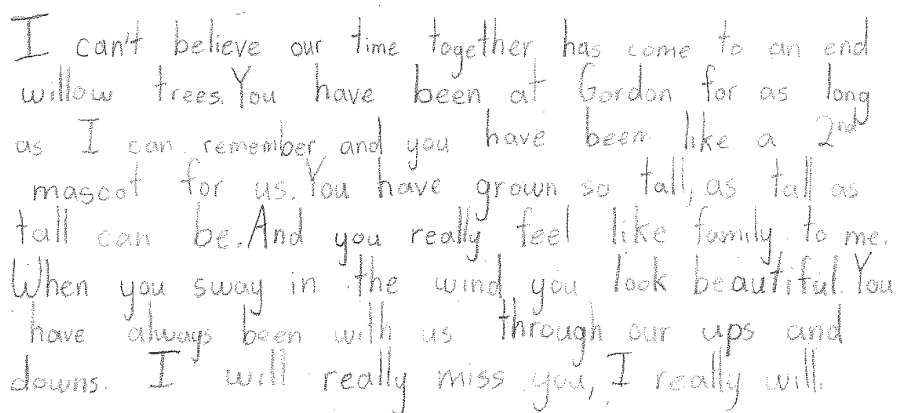 I can't believe our time together has come to an end
willow trees. You have been at Gordon for as long
as I can remember and you have been like a 2nd
mascot for us. You have grown so tall, as tall as
tall can be. And you really feel like family to me.
When you sway in the wind you look beautiful. You
have always been with us through our ups and
downs. I will really miss you, I really will.